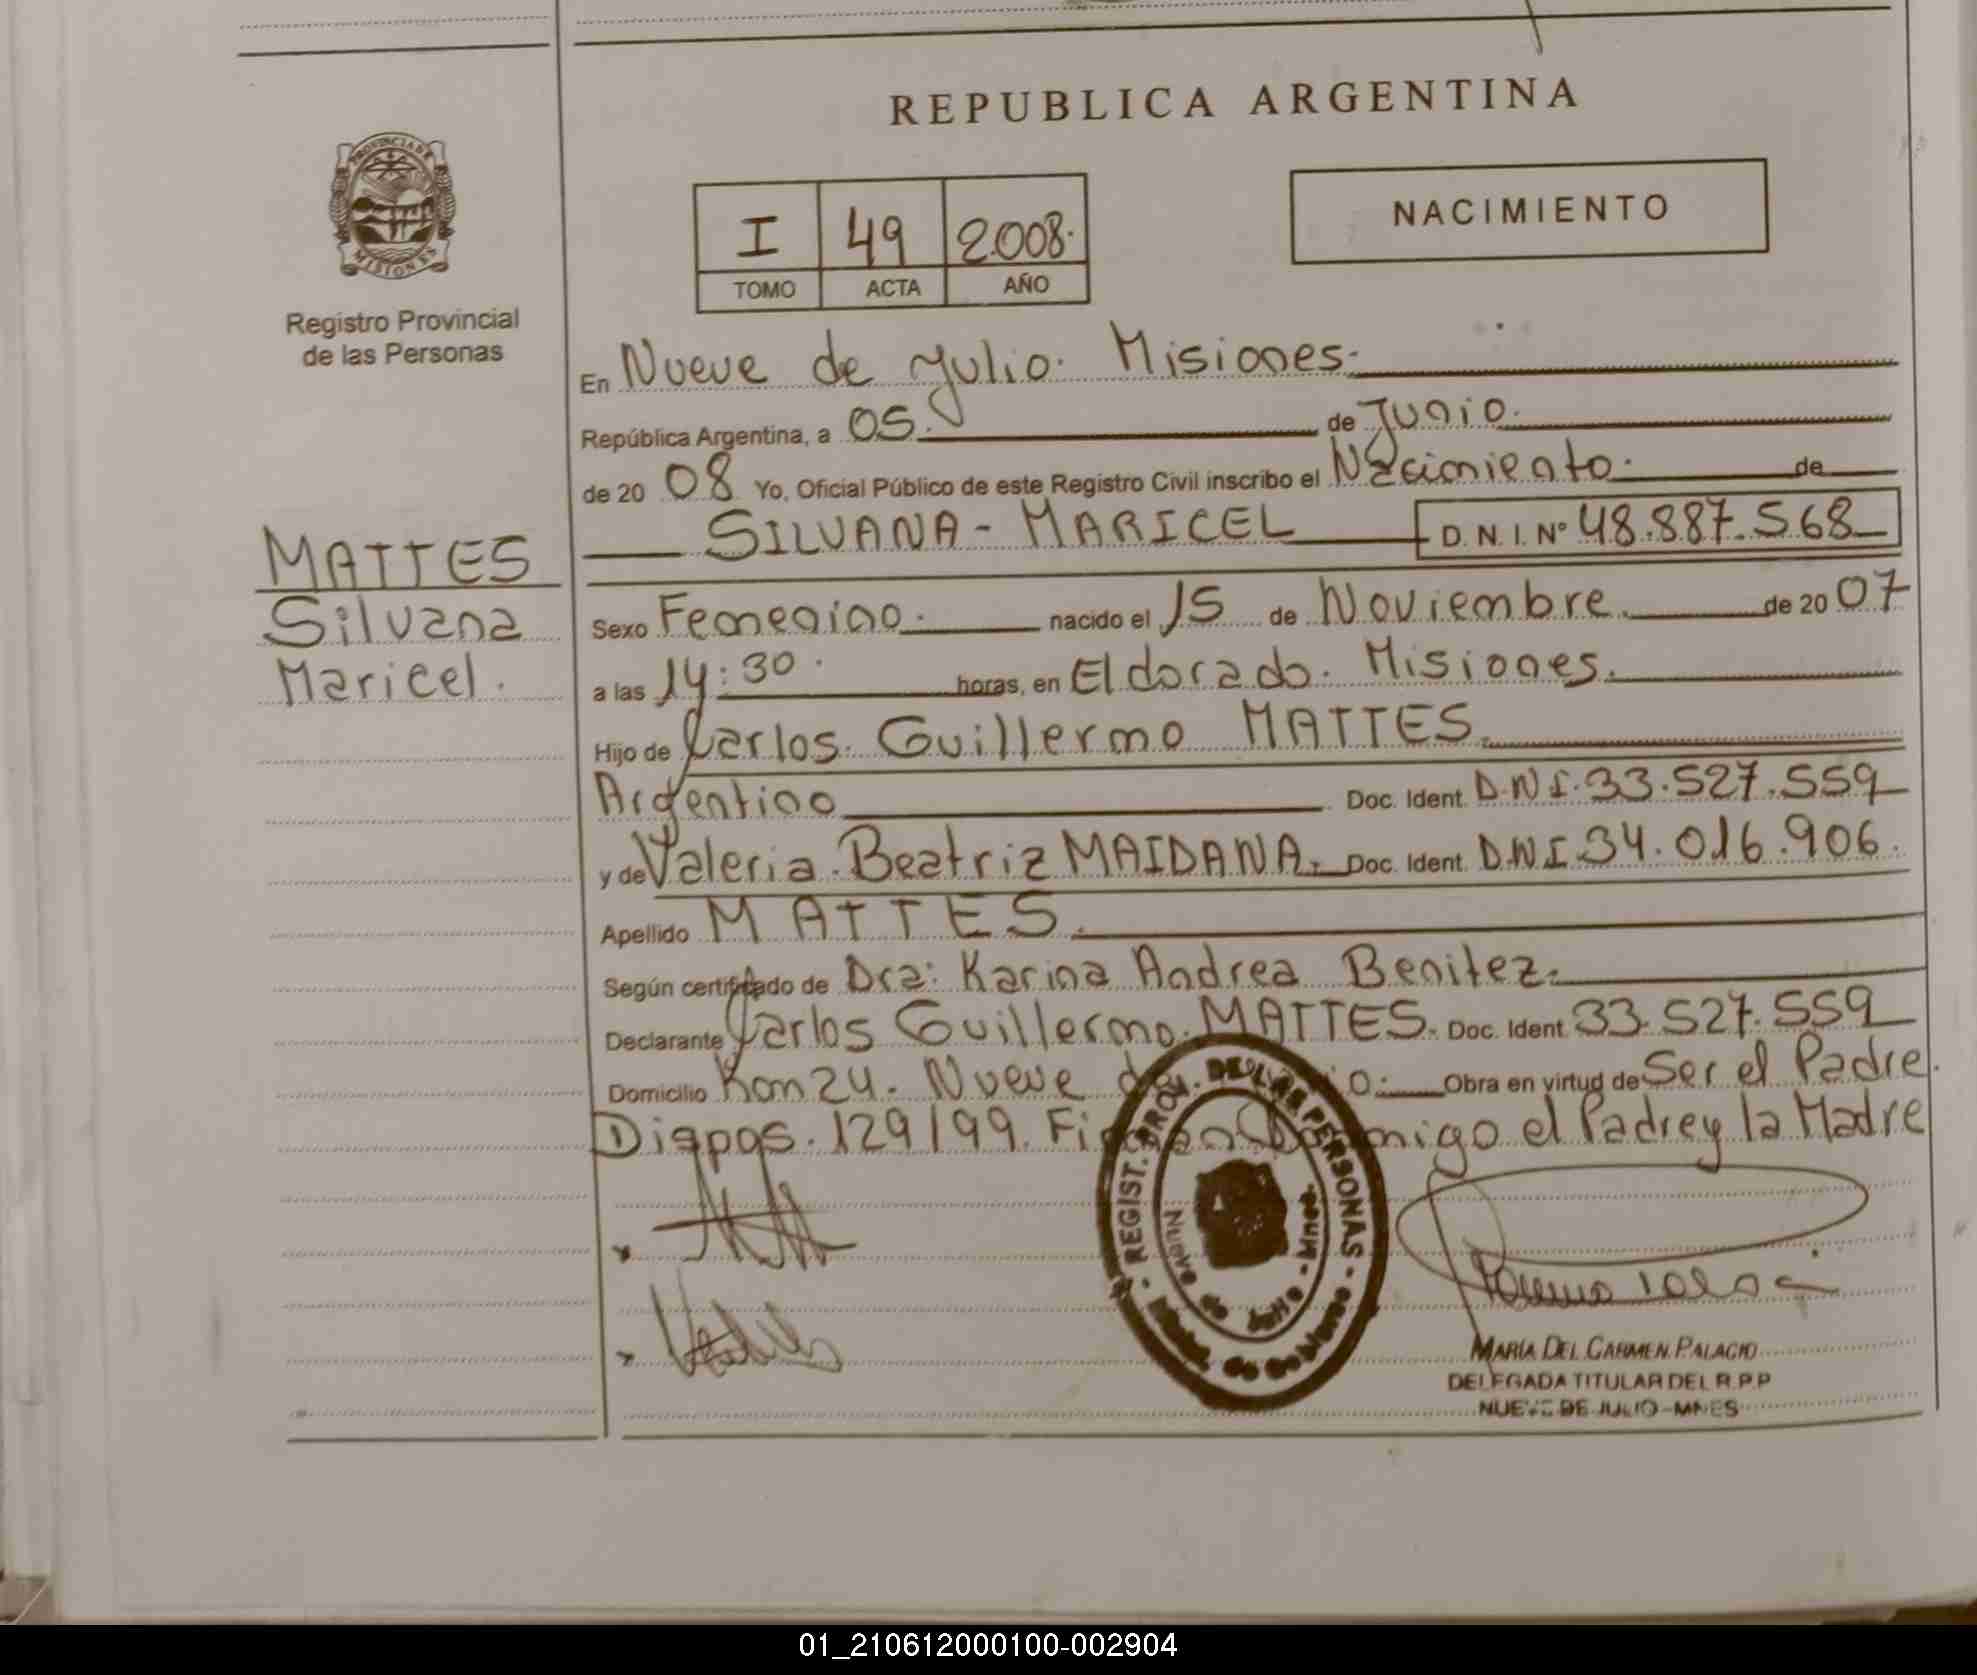 REPUBLICA ARGENTINA
PROVINCIA DE
MISIONES
Registro Provincial
de las Personas
I 49 2008.
TOMO ACTA AÑO
NACIMIENTO
En Nueve de Julio. Misiones.
República Argentina, a 05. de Junio.
de 20 08 Yo, Oficial Público de este Registro Civil inscribo el Nacimiento. de
SILVANA - MARICEL D. N. I. Nº 48.887.568
MATTES
Silvana
Maricel.
Sexo Femenino. nacido el 15 de Noviembre. de 20 07
a las 14:30. horas, en Eldorado. Misiones.
Hijo de Carlos. Guillermo MATTES.
Argentino Doc. Ident. D.N.I. 33.527.559
y de Valeria. Beatriz MAIDANA. Doc. Ident. D.N.I 34.016.906.
Apellido MATTES.
Según certificado de Dra: Karina Andrea Benitez.
Declarante Carlos Guillermo. MATTES. Doc. Ident. 33.527.559
Domicilio Km 24. Nueve de Obra en virtud de Ser el Padre.
① Dispos. 129/99. Firman Conmigo el Padre y la Madre
REGIST. PROV. DE LAS PERSONAS
Nueve de Julio - Mnes.
MARÍA DEL CARMEN PALACIO
DELEGADA TITULAR DEL R.P.P
NUEVE DE JULIO - MNES
01_210612000100-002904